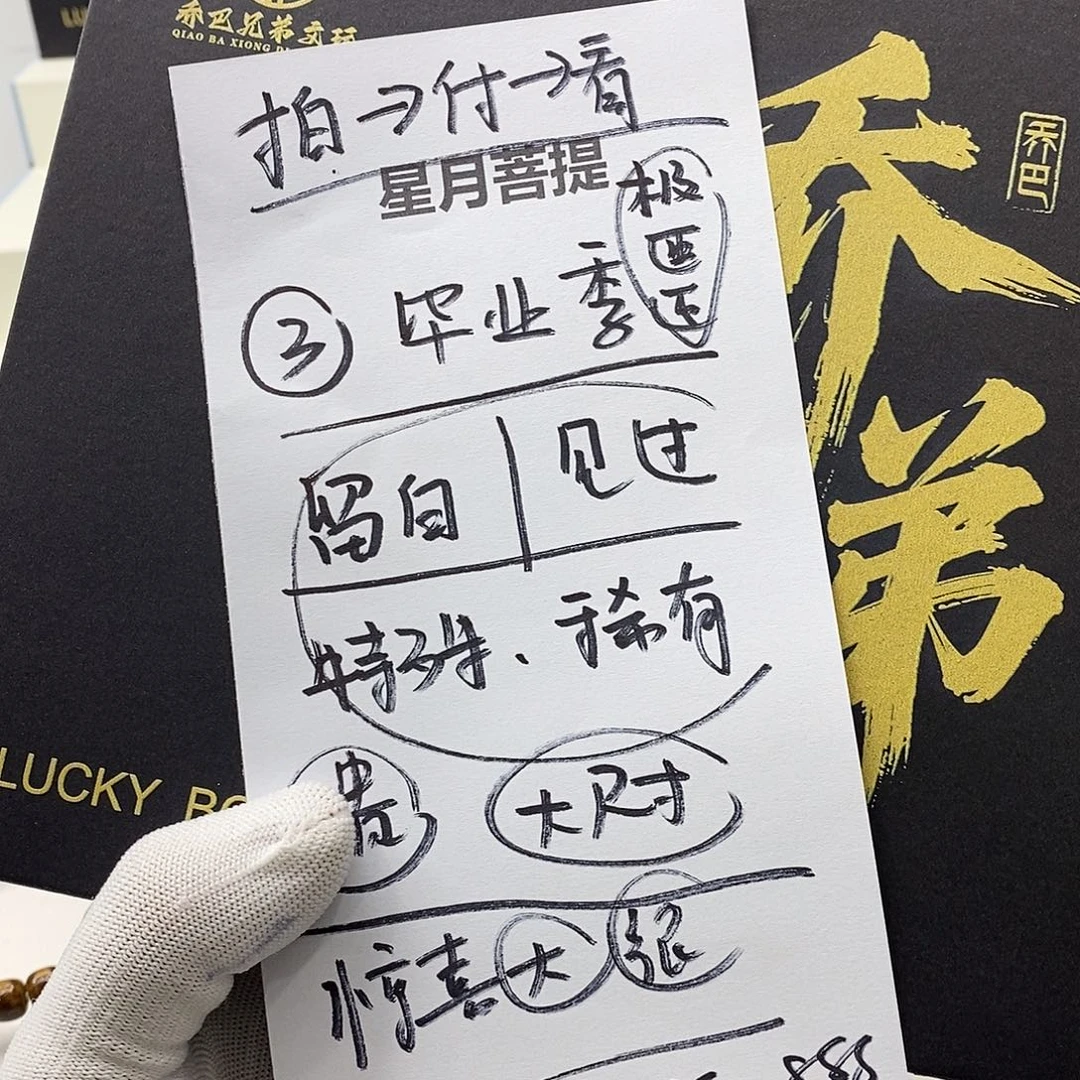 乔巴兄弟文玩
QIAO BA XIONG DI
拍→付→看
星月菩提
极
匹
③ 毕业季
留白 | 见过
特殊、稀有
贵 大尺寸
惊喜大 很
888
乔弟
乔巴
LUCKY BO